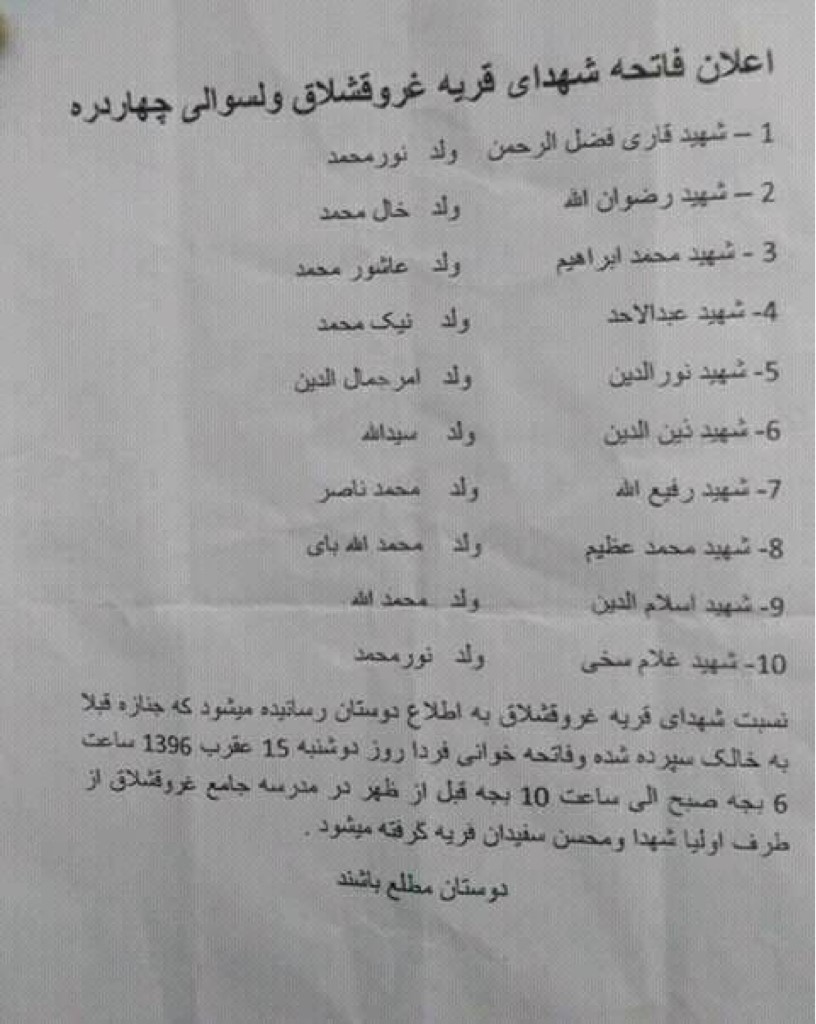 اعلان فاتحه شهدای قریه غروقشلاق ولسوالی چهاردره
1 – شهید قاری فضل الرحمن ولد نورمحمد
2 – شهید رضوان الله ولد خال محمد
3 - شهید محمد ابراهیم ولد عاشور محمد
4- شهید عبدالاحد ولد نیک محمد
5- شهید نورالدین ولد امرجمال الدین
6- شهید ذین الدین ولد سیدالله
7- شهید رفیع الله ولد محمد ناصر
8- شهید محمد عظیم ولد محمد الله بای
9- شهید اسلام الدین ولد محمد الله
10- شهید غلام سخی ولد نورمحمد
نسبت شهدای قریه غروقشلاق به اطلاع دوستان رسانیده میشود که جنازه قبلا
به خالک سپرده شده وفاتحه خوانی فردا روز دوشنبه 15 عقرب 1396 ساعت
6 بجه صبح الی ساعت 10 بجه قبل از ظهر در مدرسه جامع غروقشلاق از
طرف اولیا شهدا ومحسن سفیدان قریه گرفته میشود .
دوستان مطلع باشند